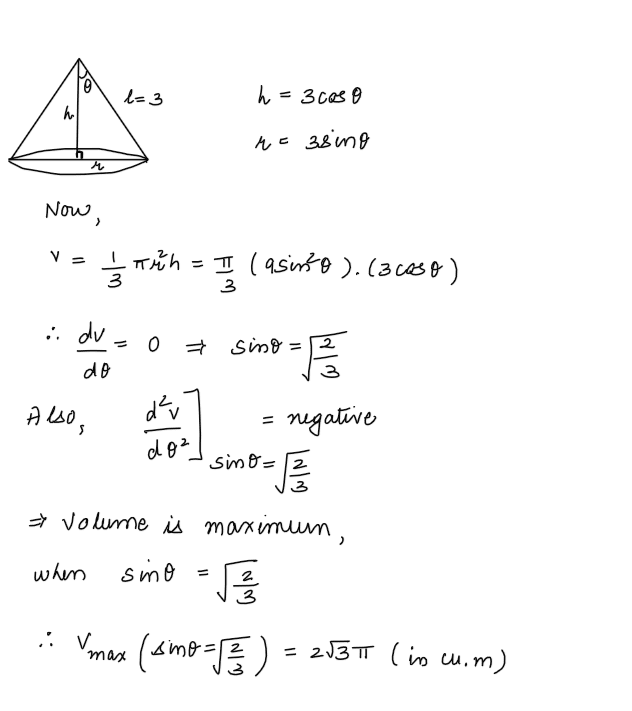 θ
l = 3
h
r
h = 3 cos θ
r = 3 sin θ
Now,
v = 1/3 πr²h = π/3 (9 sin²θ). (3 cos θ)
∴ dv/dθ = 0 ⇒ sinθ = √(2/3)
Also, d²v/dθ²] sinθ = √(2/3) = negative
⇒ Volume is maximum,
when sinθ = √(2/3)
∴ Vmax (sinθ = √(2/3)) = 2√3 π (in cu. m)